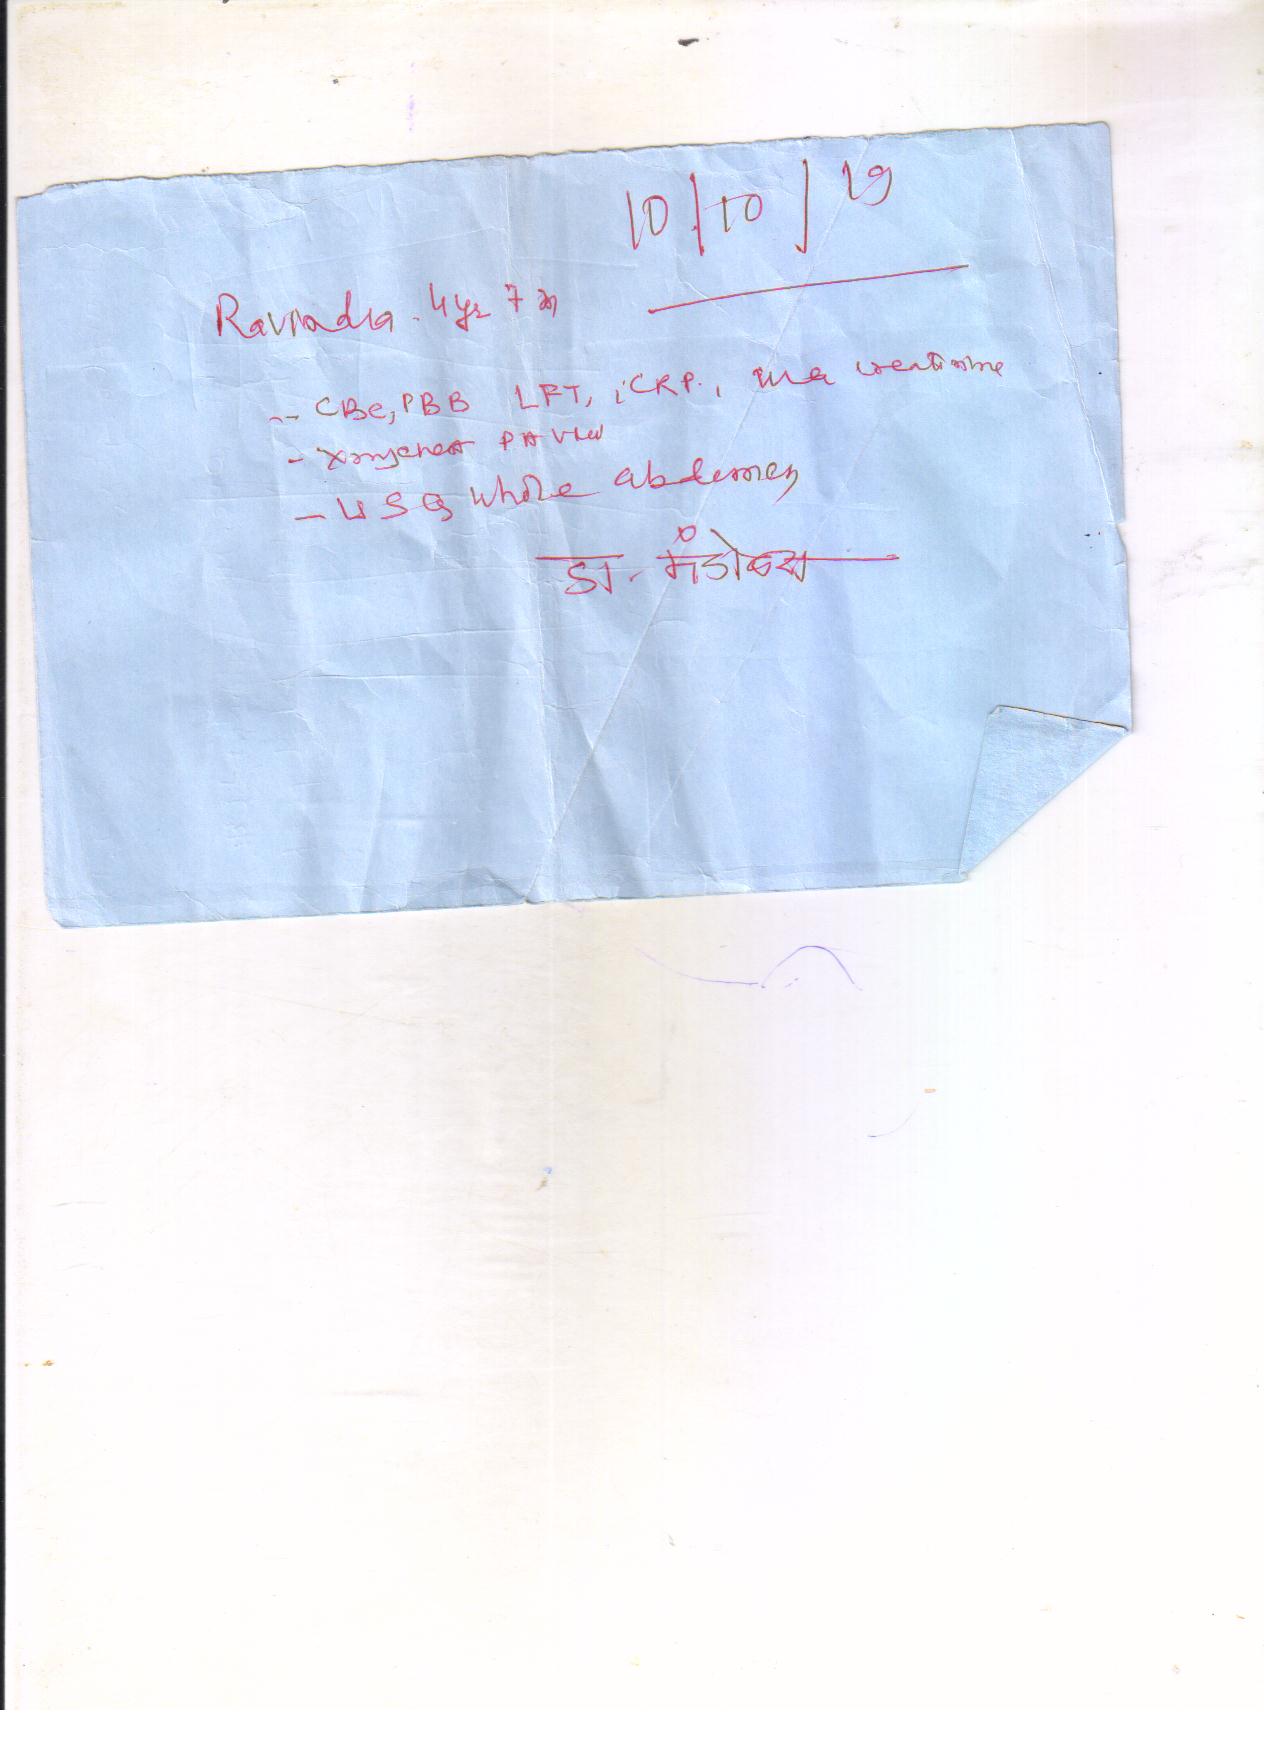 10/10/19
Ravindra. 4 yr 7 m
- CBC, PBB LFT, iCRP., urea creatinine
- Xray chest PA view
- USG whole abdomen
डा.